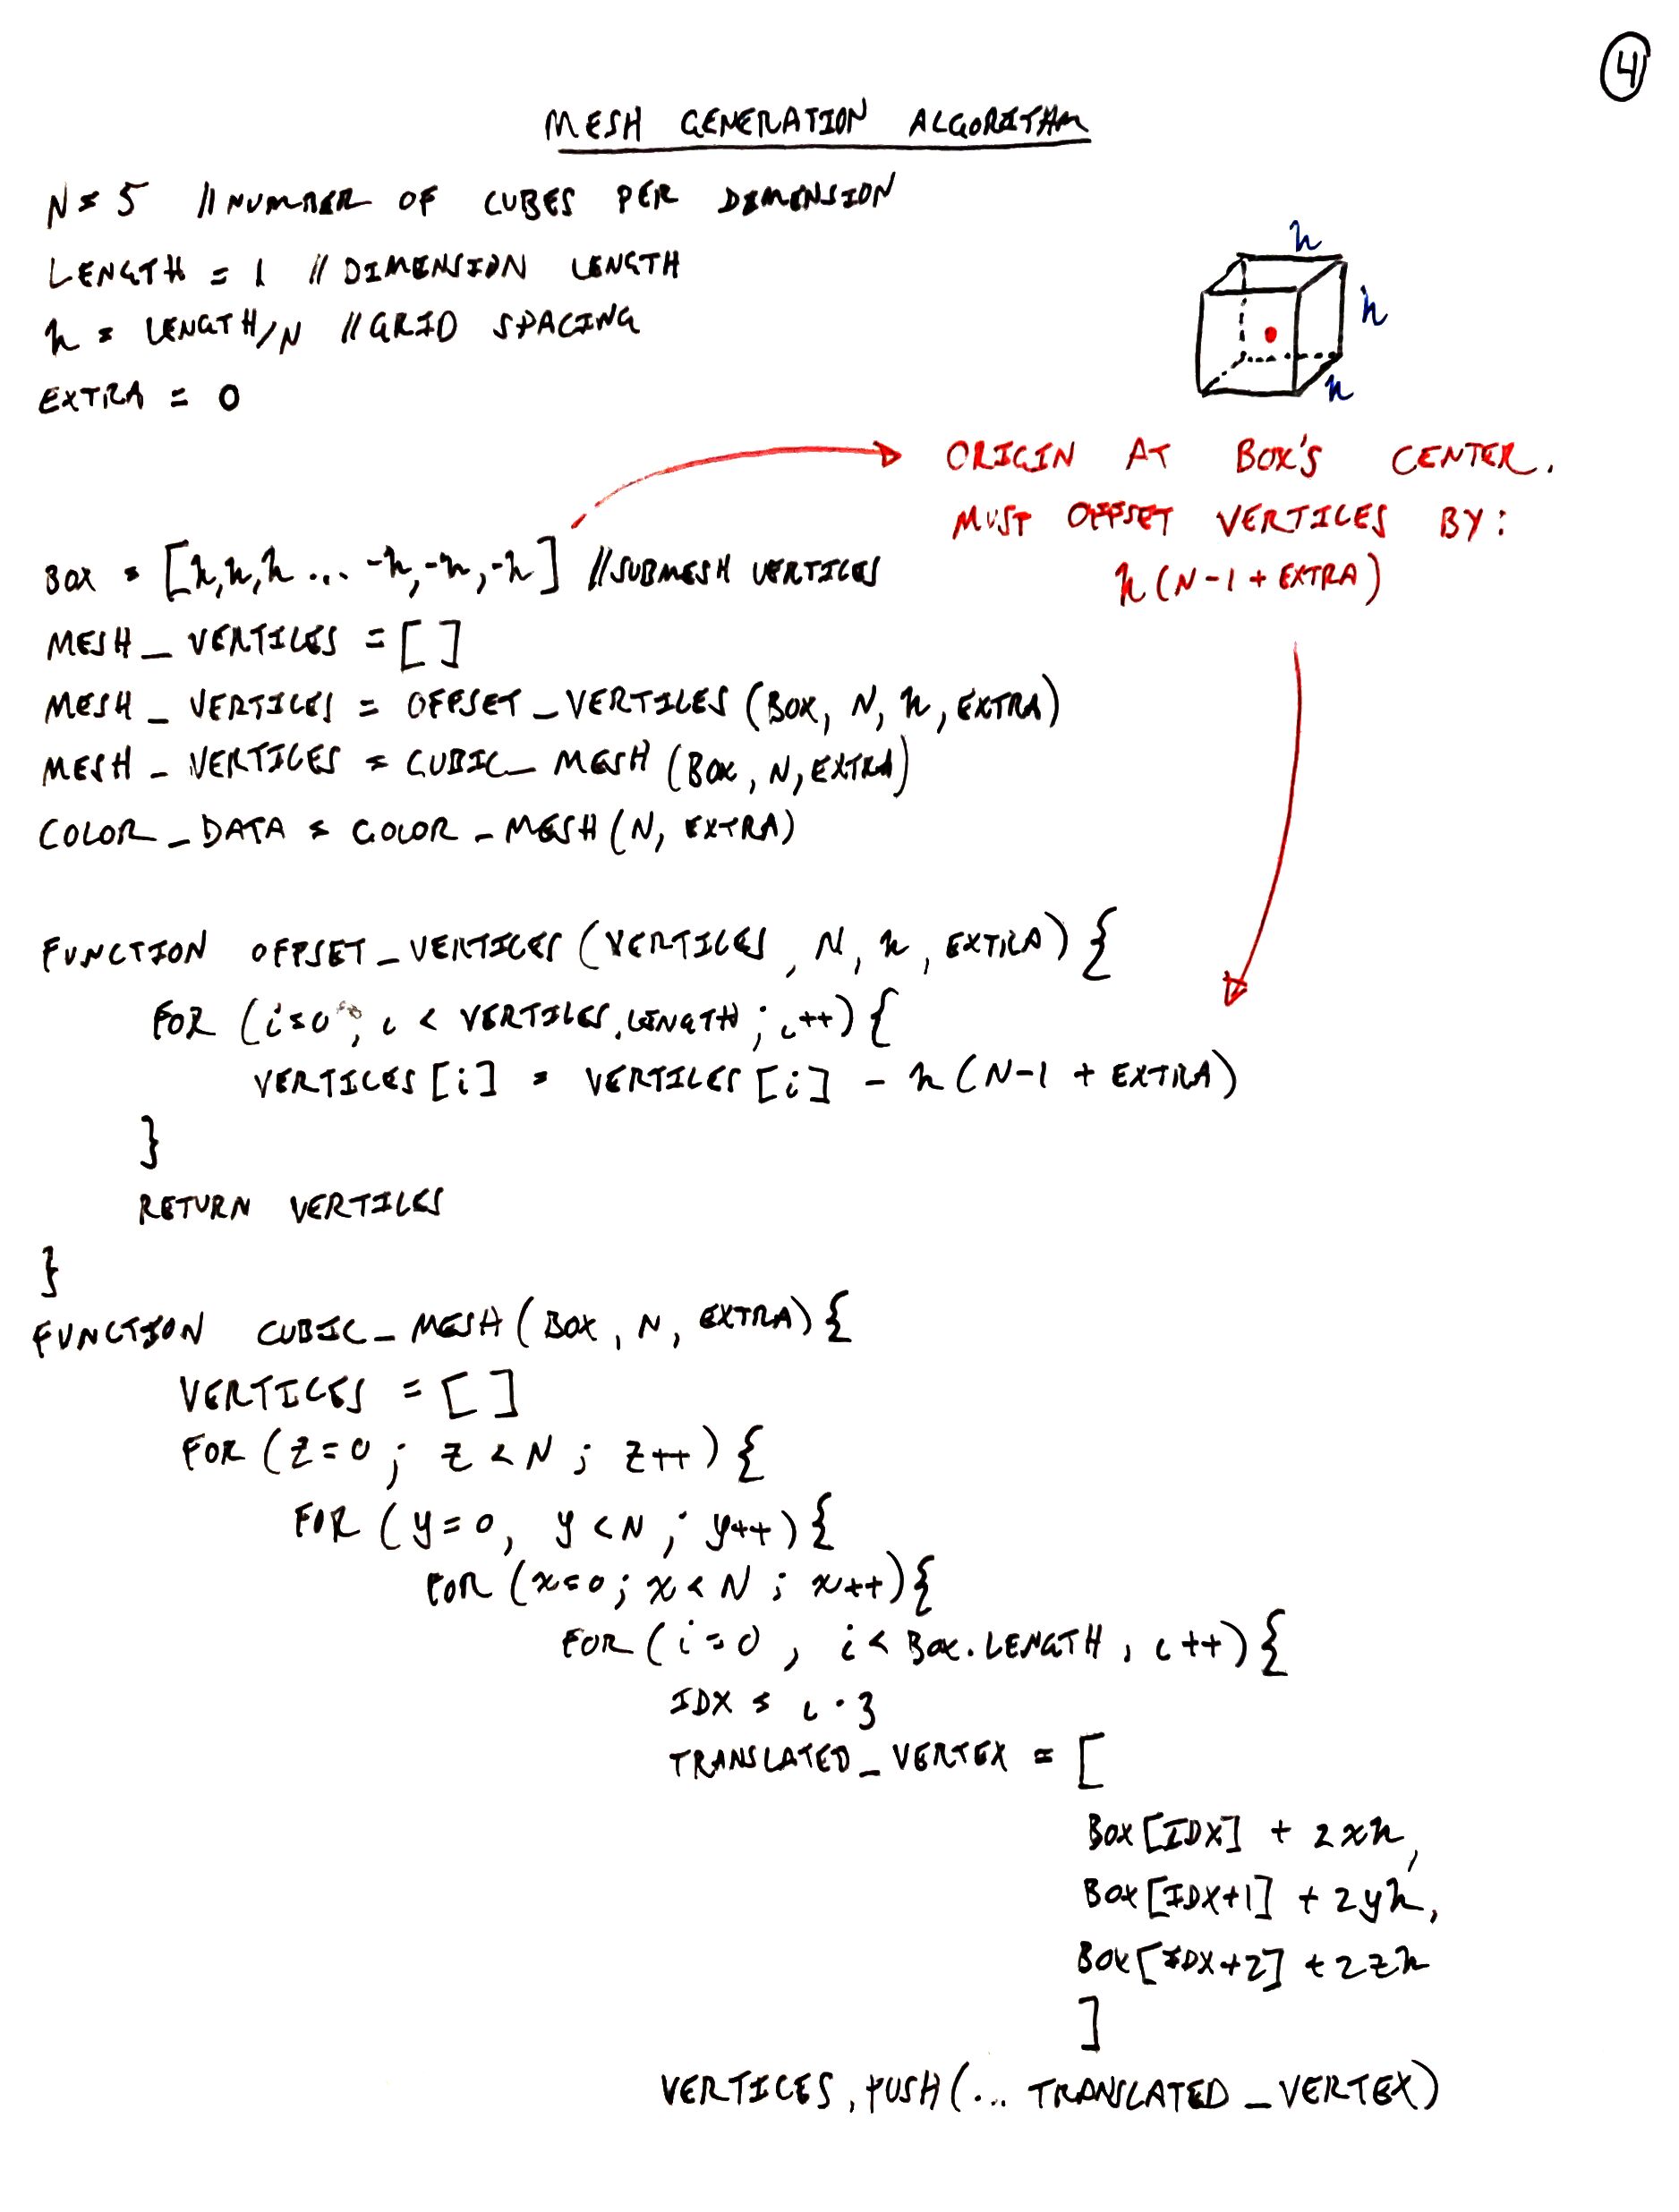 4
MESH GENERATION ALGORITHM
N = 5 // NUMBER OF CUBES PER DIMENSION
LENGTH = 1 // DIMENSION LENGTH
h = LENGTH/N // GRID SPACING
EXTRA = 0
h
h
h
ORIGIN AT BOX'S CENTER.
MUST OFFSET VERTICES BY:
h(N-1+EXTRA)
BOX = [h,h,h ... -h,-h,-h] // SUBMESH VERTICES
MESH_VERTICES = []
MESH_VERTICES = OFFSET_VERTICES(BOX, N, h, EXTRA)
MESH_VERTICES = CUBIC_MESH(BOX, N, EXTRA)
COLOR_DATA = COLOR_MESH(N, EXTRA)
FUNCTION OFFSET_VERTICES(VERTICES, N, h, EXTRA){
FOR (i=0; i < VERTICES.LENGTH; i++){
VERTICES[i] = VERTICES[i] - h(N-1 + EXTRA)
}
RETURN VERTICES
}
FUNCTION CUBIC_MESH(BOX, N, EXTRA){
VERTICES = []
FOR (z=0; z < N; z++){
FOR (y=0, y < N; y++){
FOR (x=0; x < N; x++){
FOR (i=0, i < BOX.LENGTH, i++){
IDX = i·3
TRANSLATED_VERTEX = [
BOX[IDX] + 2xh,
BOX[IDX+1] + 2yh,
BOX[IDX+2] + 2zh
]
VERTICES.PUSH(... TRANSLATED_VERTEX)